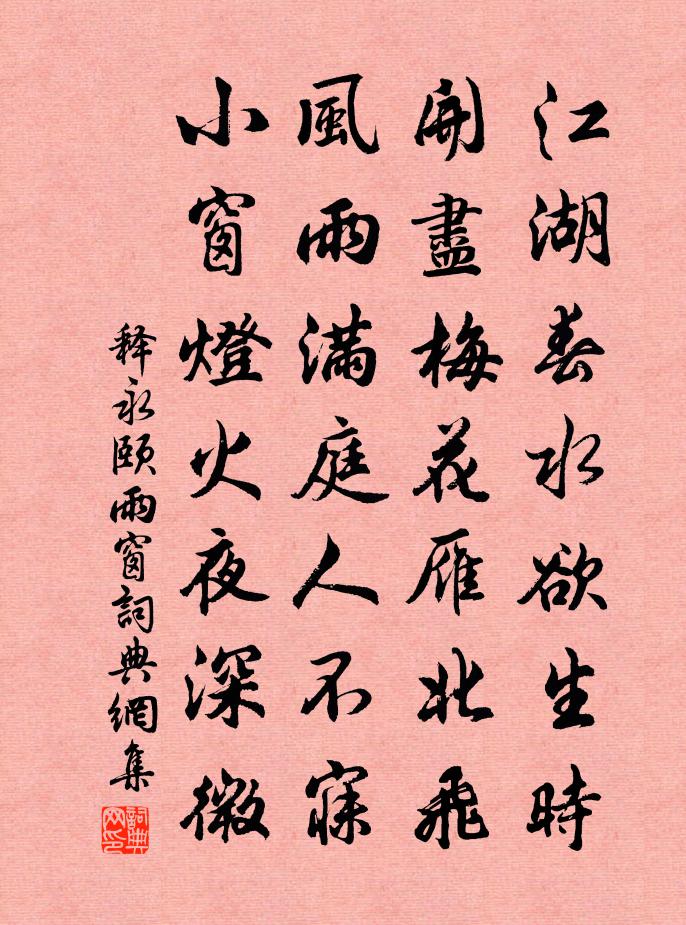 江湖春水欲生時
開盡梅花雁北飛
風雨滿庭人不寐
小窗燈火夜深微
释永颐雨窗詞典網集
詞典网印